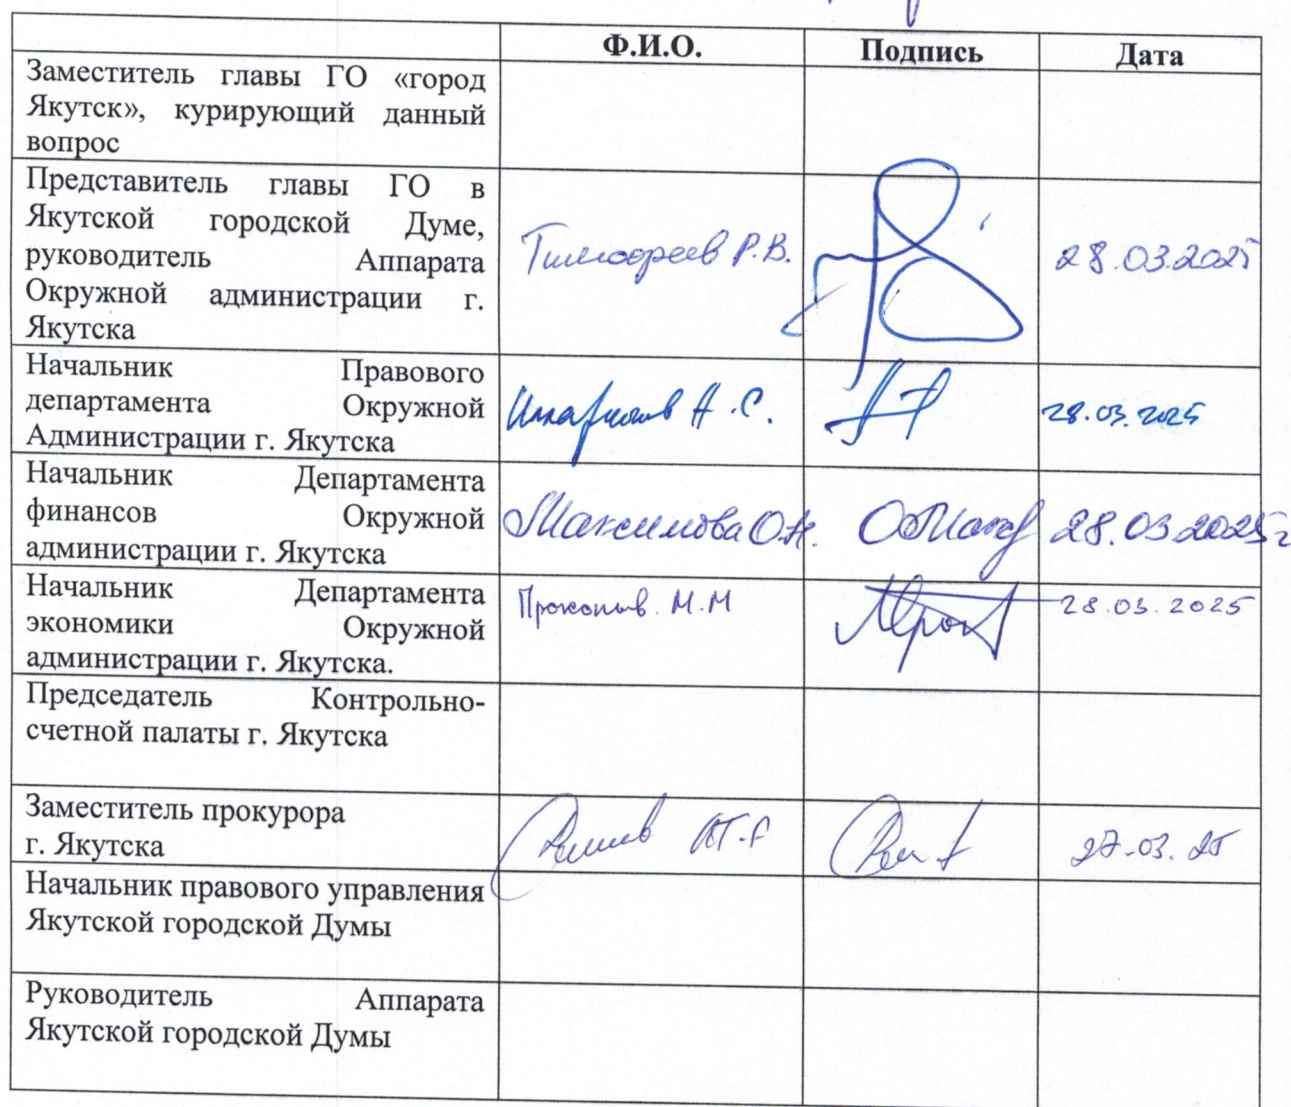 Ф.И.О. Подпись Дата
Заместитель главы ГО «город
Якутск», курирующий данный
вопрос
Представитель главы ГО в
Якутской городской Думе,
руководитель Аппарата
Окружной администрации г.
Якутска
Тимофеев Р.В. 28.03.2025
Начальник Правового
департамента Окружной
Администрации г. Якутска
А.С. 28.03.2025
Начальник Департамента
финансов Окружной
администрации г. Якутска
Максимова О.Н. 28.03.2025г
Начальник Департамента
экономики Окружной
администрации г. Якутска.
Прокопьев М.М 28.03.2025
Председатель Контрольно-
счетной палаты г. Якутска
Заместитель прокурора
г. Якутска
27.03.25
Начальник правового управления
Якутской городской Думы
Руководитель Аппарата
Якутской городской Думы